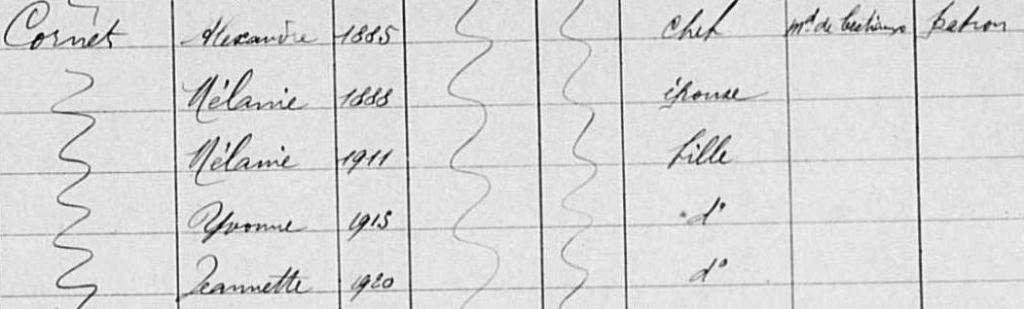 Cornet Alexandre 1885 chef md de bestiaux patron
Mélanie 1888 épouse
Mélanie 1911 fille
Yvonne 1915 d°
Jeannette 1920 d°